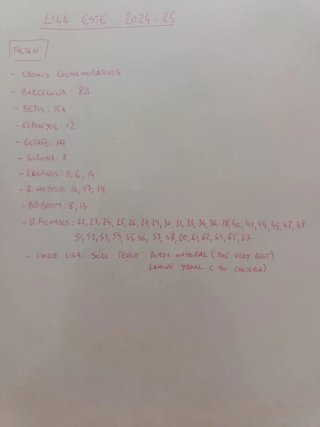 LIGA ESTE 2024-25
FALTAN
- CROMOS CONMEMORATIVOS
- BARCELONA: 8B
- BETIS: 15A
- ESPANYOL: 12
- GETAFE:
- GIRONA: 8
- LEGANES: 5, 6, 14
- R. MADRID: 16, 17, 19
- BBROOM: 8, 13
- U. FICHAJES: 22, 23, 24, 25, 26, 27, 29, 30, 31, 33, 34, 36, 38, 40, 41, 44, 45, 47, 48
51, 52, 53, 54, 55, 56, 57, 58, 60, 61, 62, 64, 65, 67
- CHICLE LIGA: SÓLO TENGO BORJA MAYORAL (THE VERY BEST)
LAMINE YAMAL (